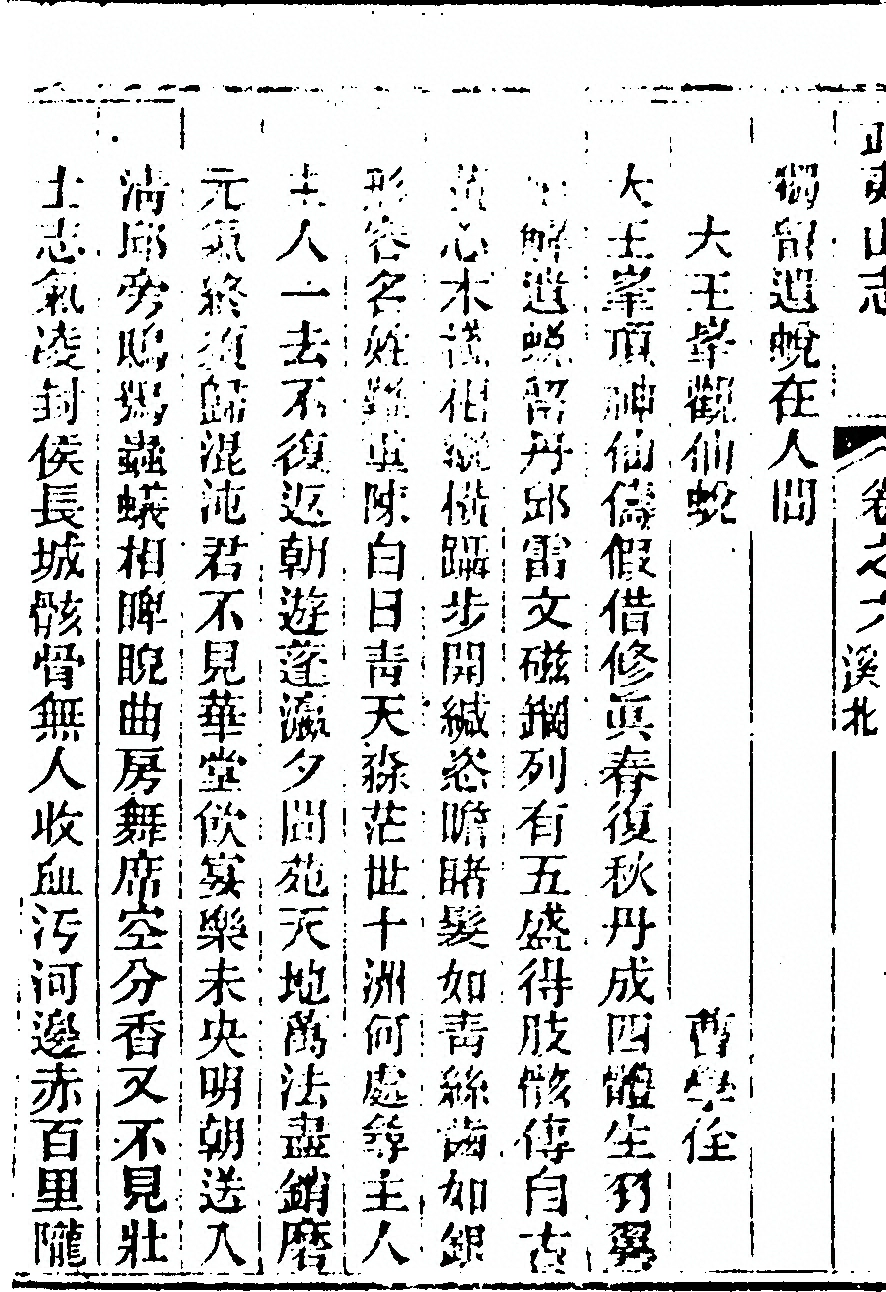 武夷山志 卷之六 溪北
獨留遺蛻在人間
大王峯觀仙蛻 曹學佺
大王峯頂神仙儔假借修眞春復秋丹成四體生羽翼
解遺蛻留丹邱雷文磁錮列有五盛得肢骸傳自古
黃心木護柑欖橫躡步開緘恣瞻睹髮如靑絲齒如銀
形容名姓難具陳白日靑天淼茫世十洲何處尋主人
主人一去不復返朝遊蓬瀛夕閬苑天地萬法盡銷磨
元氣終須歸混沌君不見華堂飮宴樂未央明朝送入
淸邱旁鴟鴞蟲蟻相睥睨曲房舞席空分香又不見壯
士志氣凌封侯長城骸骨無人收血汚河邊赤百里隴